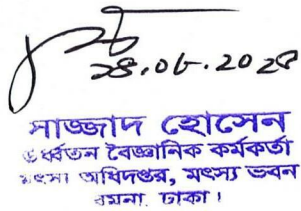 ২৪.০৮.২০২৪
সাজ্জাদ হোসেন
ঊর্ধ্বতন বৈজ্ঞানিক কর্মকর্তা
মৎস্য অধিদপ্তর, মৎস্য ভবন
রমনা, ঢাকা।